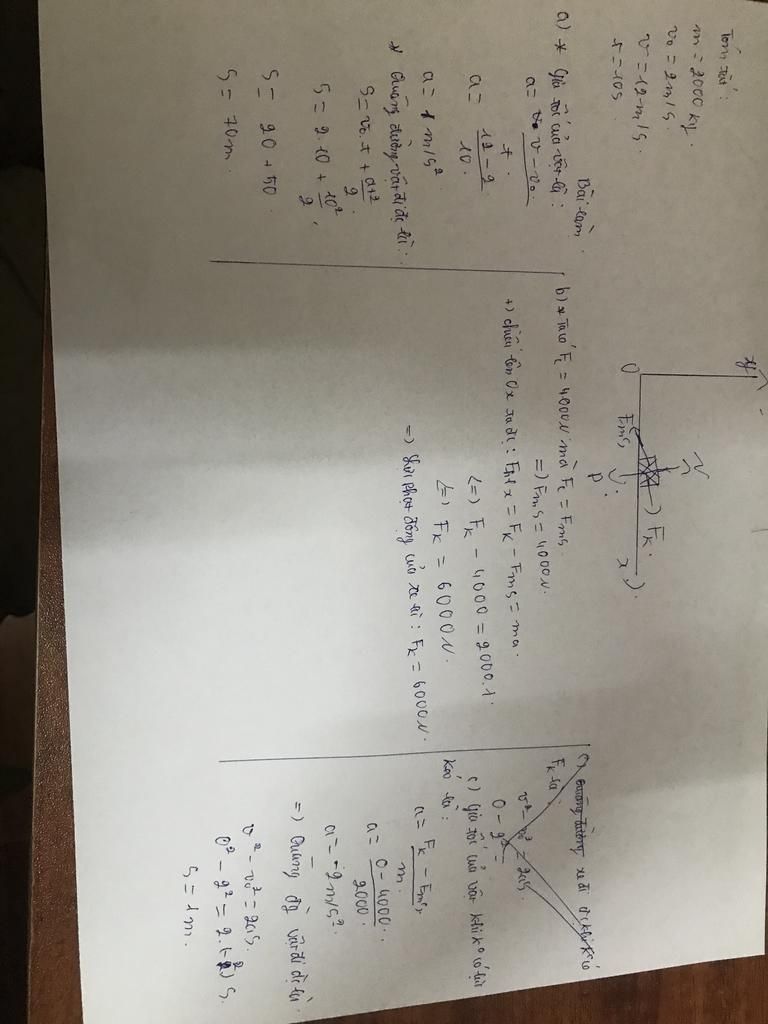 Tóm tắt:
m = 2000 kg.
v₀ = 2m/s.
v = 12m/s.
t = 10s
Bài làm.
a) * Gia tốc của vật là:
a = v - v₀
t
a = 12 - 2
10.
a = 1 m/s²
* Quãng đường vật đi đc là:
S = v₀.t + at²
2
S = 2.10 + 10²
2
S = 20 + 50.
S = 70m.
y
O
x
N
Fms
P
Fk.
b) * Ta có Fc = 4000N mà Fc = Fms.
=> Fms = 4000N.
+) chiếu lên Ox ta đc: Fhl x = Fk - Fms = ma.
<=> Fk - 4000 = 2000.1.
<=> Fk = 6000N.
=> Lực phát động của xe là: Fk = 6000N
c) Quãng đường xe đi đc khi k° có
Fk là:
v² - v₀² = 2aS.
0 - 2² =
c) Gia tốc của vật khi k° có lực
kéo là:
a = Fk - Fms
m.
a = 0 - 4000
2000.
a = -2m/s².
=> Quãng đg vật đi đc là:
v² - v₀² = 2aS.
0² - 2² = 2.(-2) S.
S = 1m.